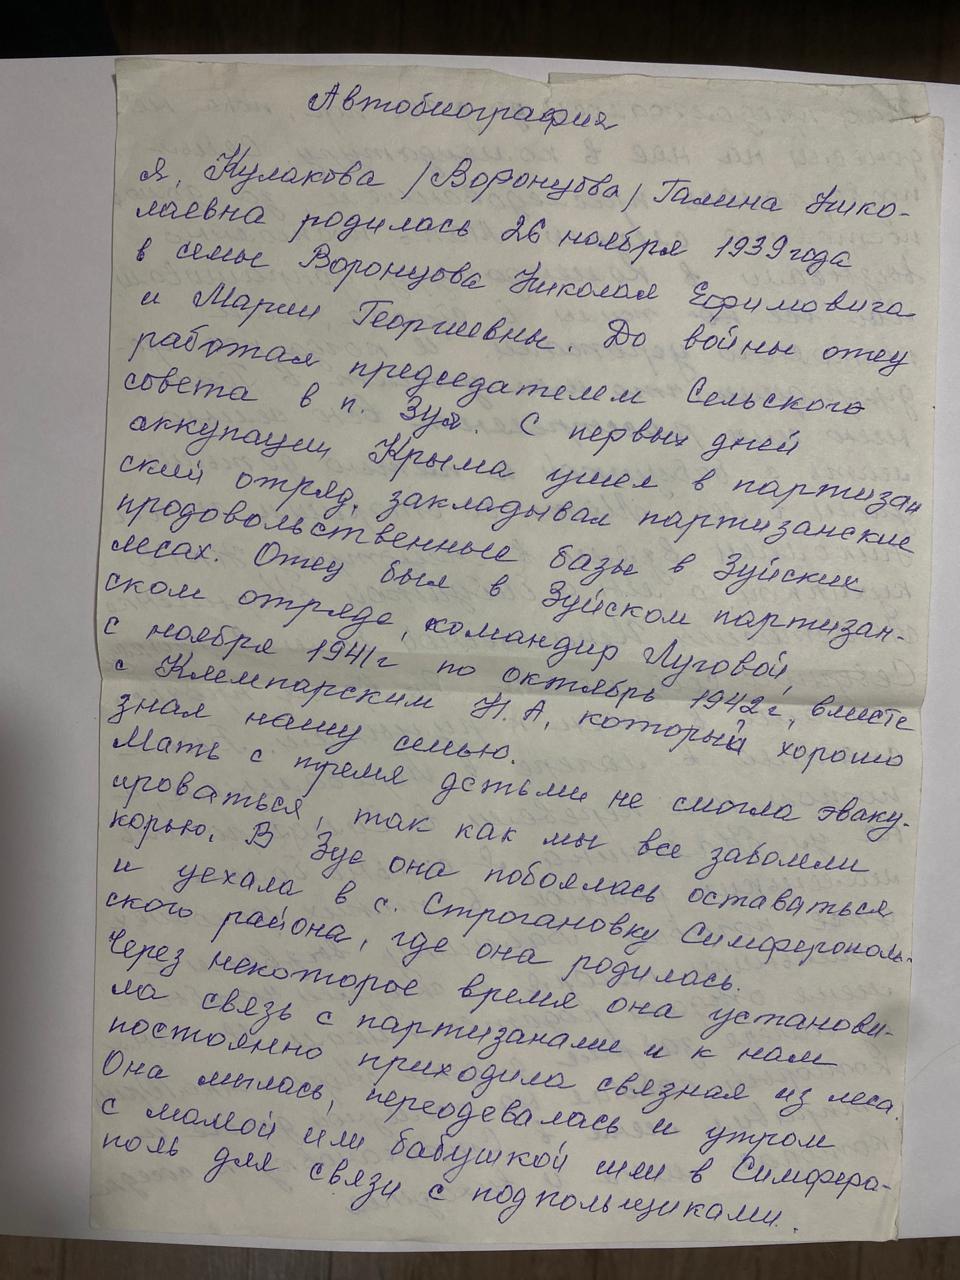 Автобиография
Я, Кулакова /Воронцова/ Галина Нико-
лаевна родилась 26 ноября 1939 года
в семье Воронцова Николая Ефимовича
и Марии Георгиевны. До войны отец
работал председателем Сельского
совета в п. Зуя. С первых дней
аккупации Крыма ушел в партизан
ский отряд, закладывал партизанские
продовольственные базы в Зуйских
лесах. Отец был в Зуйском партизан-
ском отряде, командир Луговой,
с ноября 1941г по октябрь 1942г, вместе
с Клемпарским Н.А, который хорошо
знал нашу семью.
Мать с тремя детьми не смогла эваку-
ироваться, так как мы все заболели
корью. В Зуе она побоялась оставаться
и уехала в с. Строгановку Симферополь-
ского района, где она родилась.
Через некоторое время она установи-
ла связь с партизанами и к нам
постоянно приходила связная из леса.
Она мылась, переодевалась и утром
с мамой или бабушкой шли в Симферо-
поль для связи с подпольщиками.